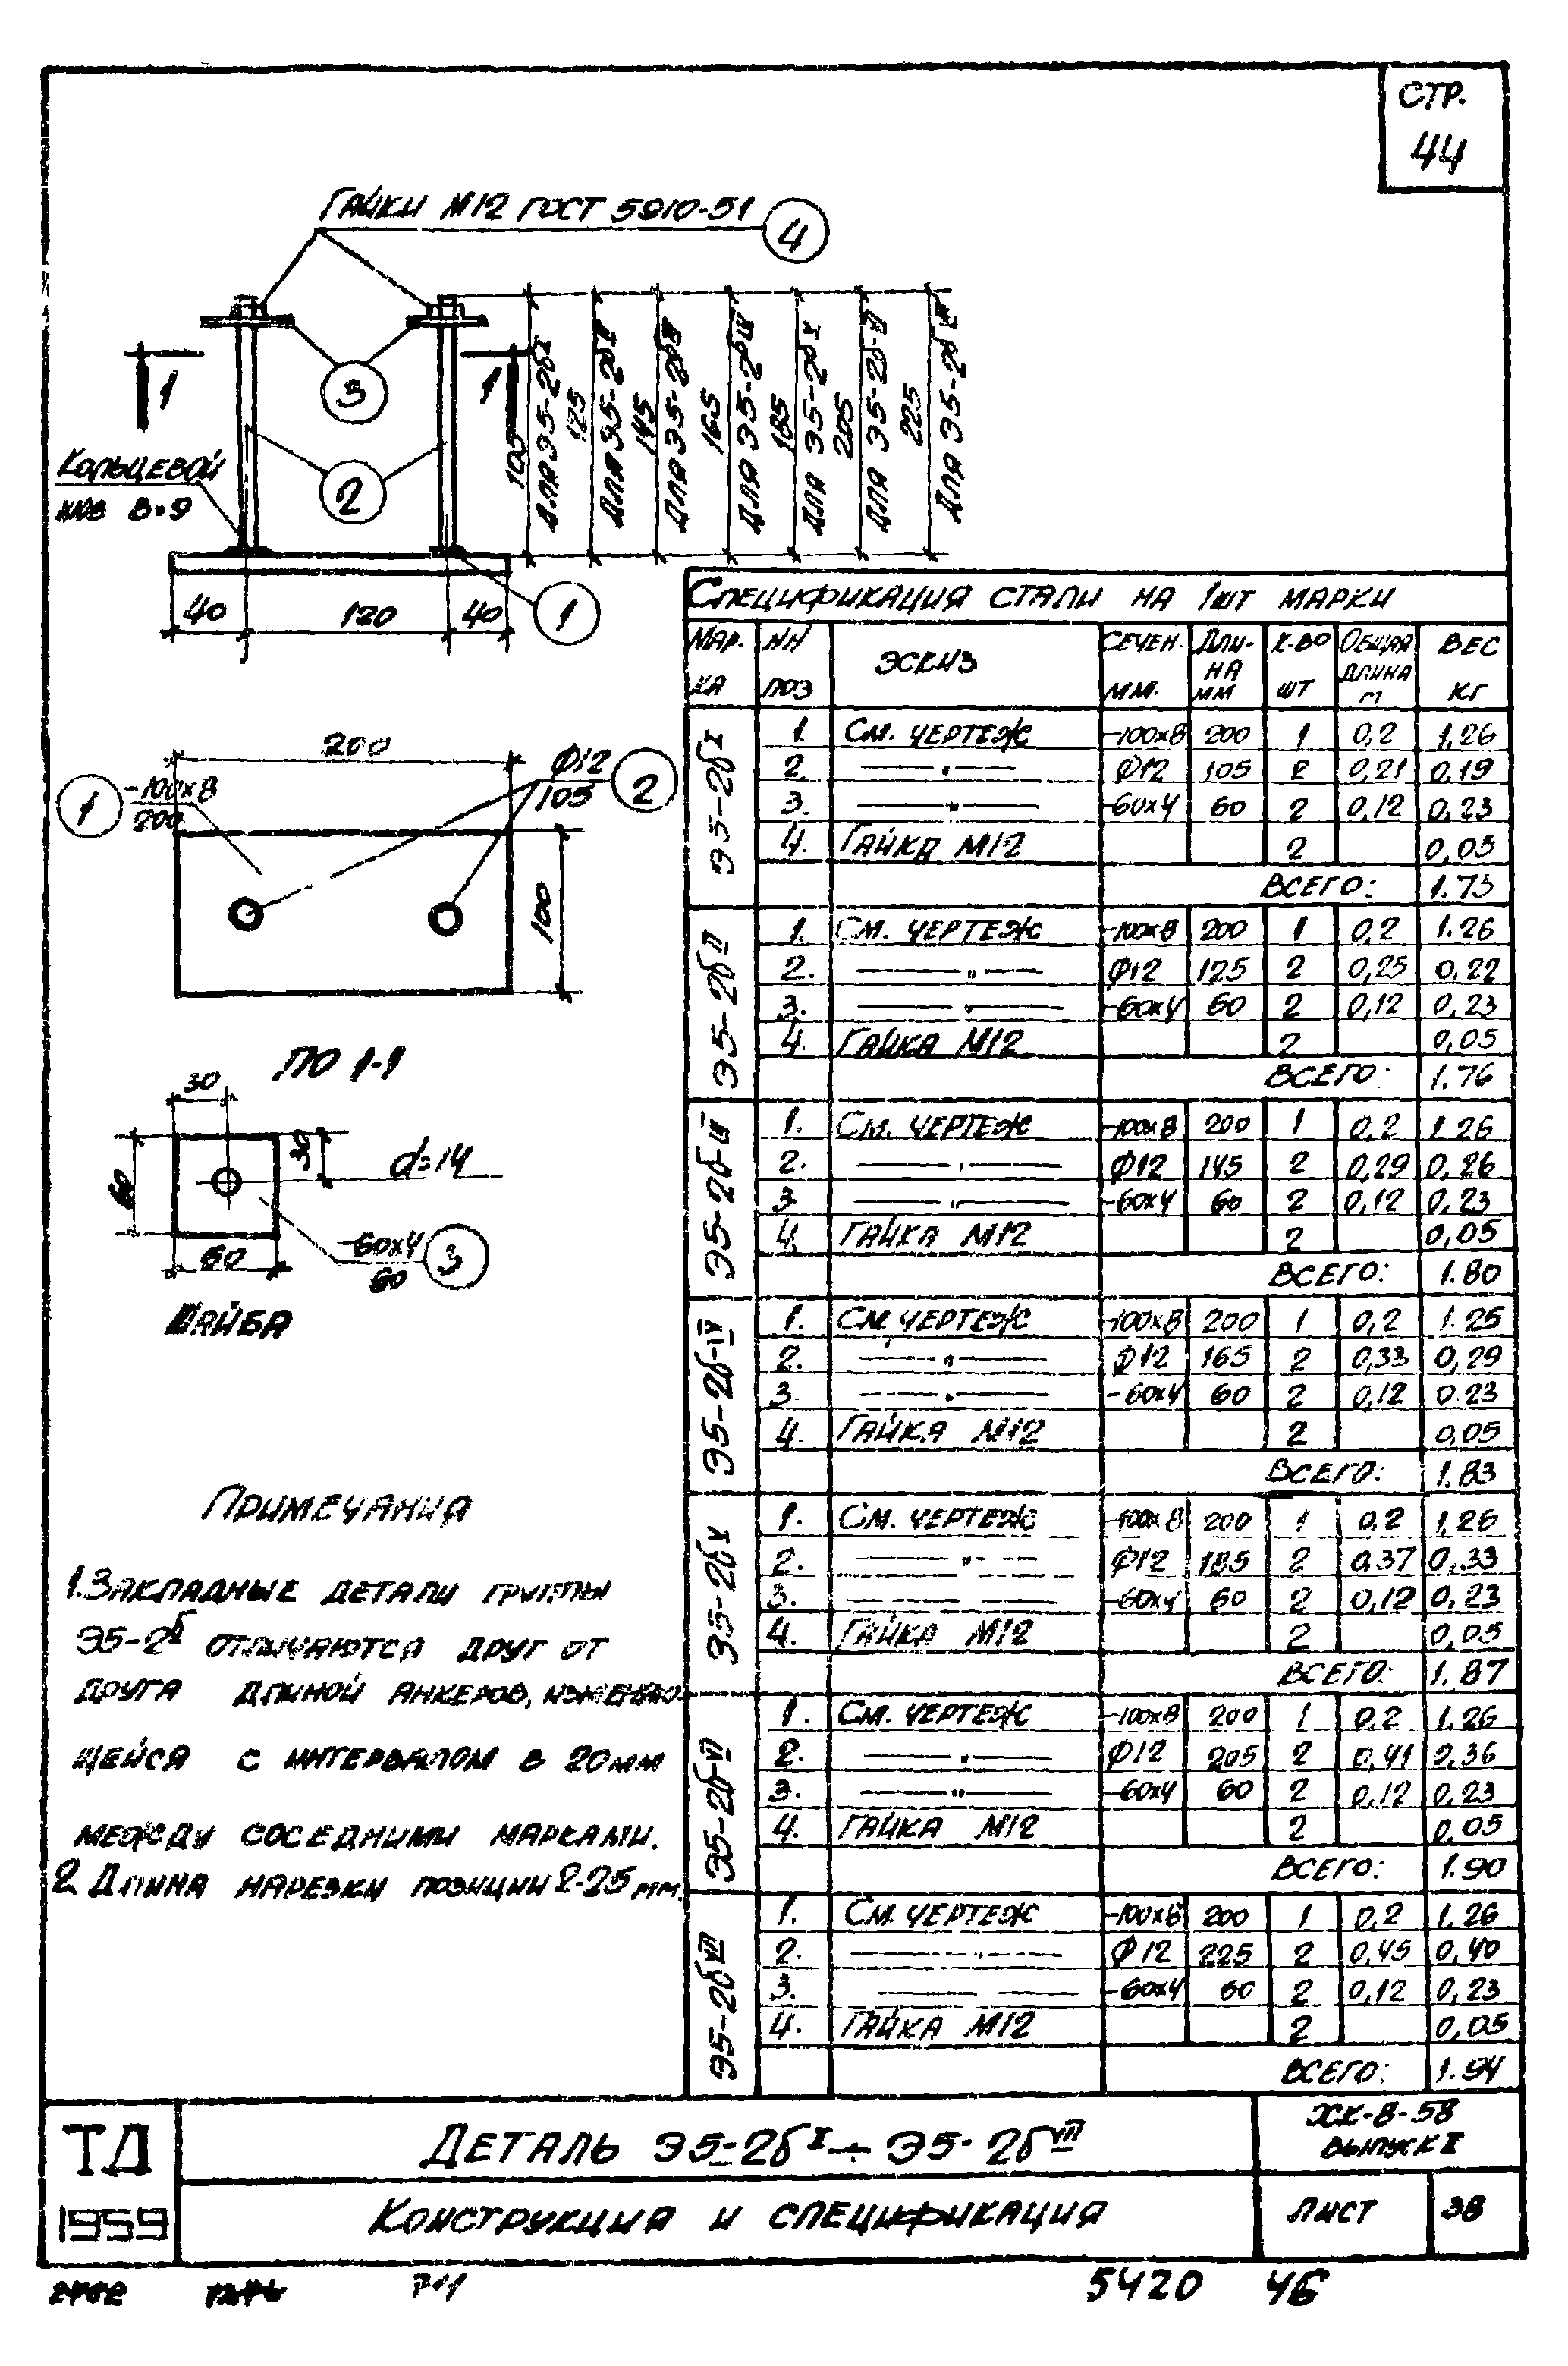 СТР.
44
ГАЙКИ М12 ГОСТ 5910-51 4
3
1 1
КОЛЬЦЕВОЙ
2
105 ДЛЯ Э5-2бI
125 ДЛЯ Э5-2бII
145 ДЛЯ Э5-2бIII
165 ДЛЯ Э5-2бIV
185 ДЛЯ Э5-2бV
205 ДЛЯ Э5-2бVI
225 ДЛЯ Э5-2бVII
40 120 40 1
200
1 -100х8
200
Ф12
105 2
100
ПО 1-1
30
30
d=14
60
60
-60х4
60 3
ШАЙБА
ПРИМЕЧАНИЯ
1. ЗАКЛАДНЫЕ ДЕТАЛИ ГРУППЫ
Э5-2б ОТЛИЧАЮТСЯ ДРУГ ОТ
ДРУГА ДЛИНОЙ АНКЕРОВ, ИЗМЕНЯЮ
ЩЕЙСЯ С ИНТЕРВАЛОМ В 20мм
МЕЖДУ СОСЕДНИМИ МАРКАМИ.
2 ДЛИНА НАРЕЗКИ ПОЗИЦИИ 2-25 мм.
СПЕЦИФИКАЦИЯ СТАЛИ НА 1шт МАРКИ
МАР.КА NN ПОЗ ЭСКИЗ СЕЧЕН. ММ. ДЛИНА ММ К-ВО ШТ ОБЩАЯ ДЛИНА М ВЕС КГ
Э5-2бI
1. СМ. ЧЕРТЕЖ -100х8 200 1 0,2 1.26
2. —„— Ф12 105 2 0,21 0,19
3. —„— -60х4 60 2 0,12 0,23
4. ГАЙКА М12 2 0,05
ВСЕГО: 1.73
Э5-2бII
1. СМ. ЧЕРТЕЖ -100х8 200 1 0,2 1.26
2. —„— Ф12 125 2 0,25 0,22
3. —„— -60х4 60 2 0,12 0,23
4. ГАЙКА М12 2 0,05
ВСЕГО: 1.76
Э5-2б-III
1. СМ. ЧЕРТЕЖ -100х8 200 1 0,2 1.26
2. —„— Ф12 145 2 0,29 0,26
3 —„— -60х4 60 2 0,12 0,23
4. ГАЙКА М12 2 0,05
ВСЕГО: 1.80
Э5-2б-IV
1. СМ ЧЕРТЕЖ -100х8 200 1 0,2 1.25
2. —„— Ф12 165 2 0,33 0,29
3. —„— -60х4 60 2 0,12 0.23
4. ГАЙКА М12 2 0,05
ВСЕГО: 1.83
Э5-2бV
1. СМ. ЧЕРТЕЖ -100х8 200 1 0,2 1,26
2. —„— Ф12 185 2 0,37 0,33
3. -60х4 60 2 0,12 0,23
4. ГАЙКА М12 2 0,05
ВСЕГО: 1.87
Э5-2бVI
1. СМ. ЧЕРТЕЖ -100х8 200 1 0,2 1.26
2. —„— Ф12 205 2 0,41 0,36
3. —„— -60х4 60 2 0,12 0,23
4. ГАЙКА М12 2 0,05
ВСЕГО: 1.90
Э5-2бVII
1. СМ. ЧЕРТЕЖ -100х8 200 1 0,2 1.26
2. —„— Ф12 225 2 0,45 0,40
3. -60х4 60 2 0,12 0,23
4. ГАЙКА М12 2 0,05
ВСЕГО: 1.94
ТД
1959
ДЕТАЛЬ Э5-2бI ÷ Э5-2бVII
КОНСТРУКЦИЯ И СПЕЦИФИКАЦИЯ
ЖК-8-58
ВЫПУСК II
ЛИСТ 38
5420 46